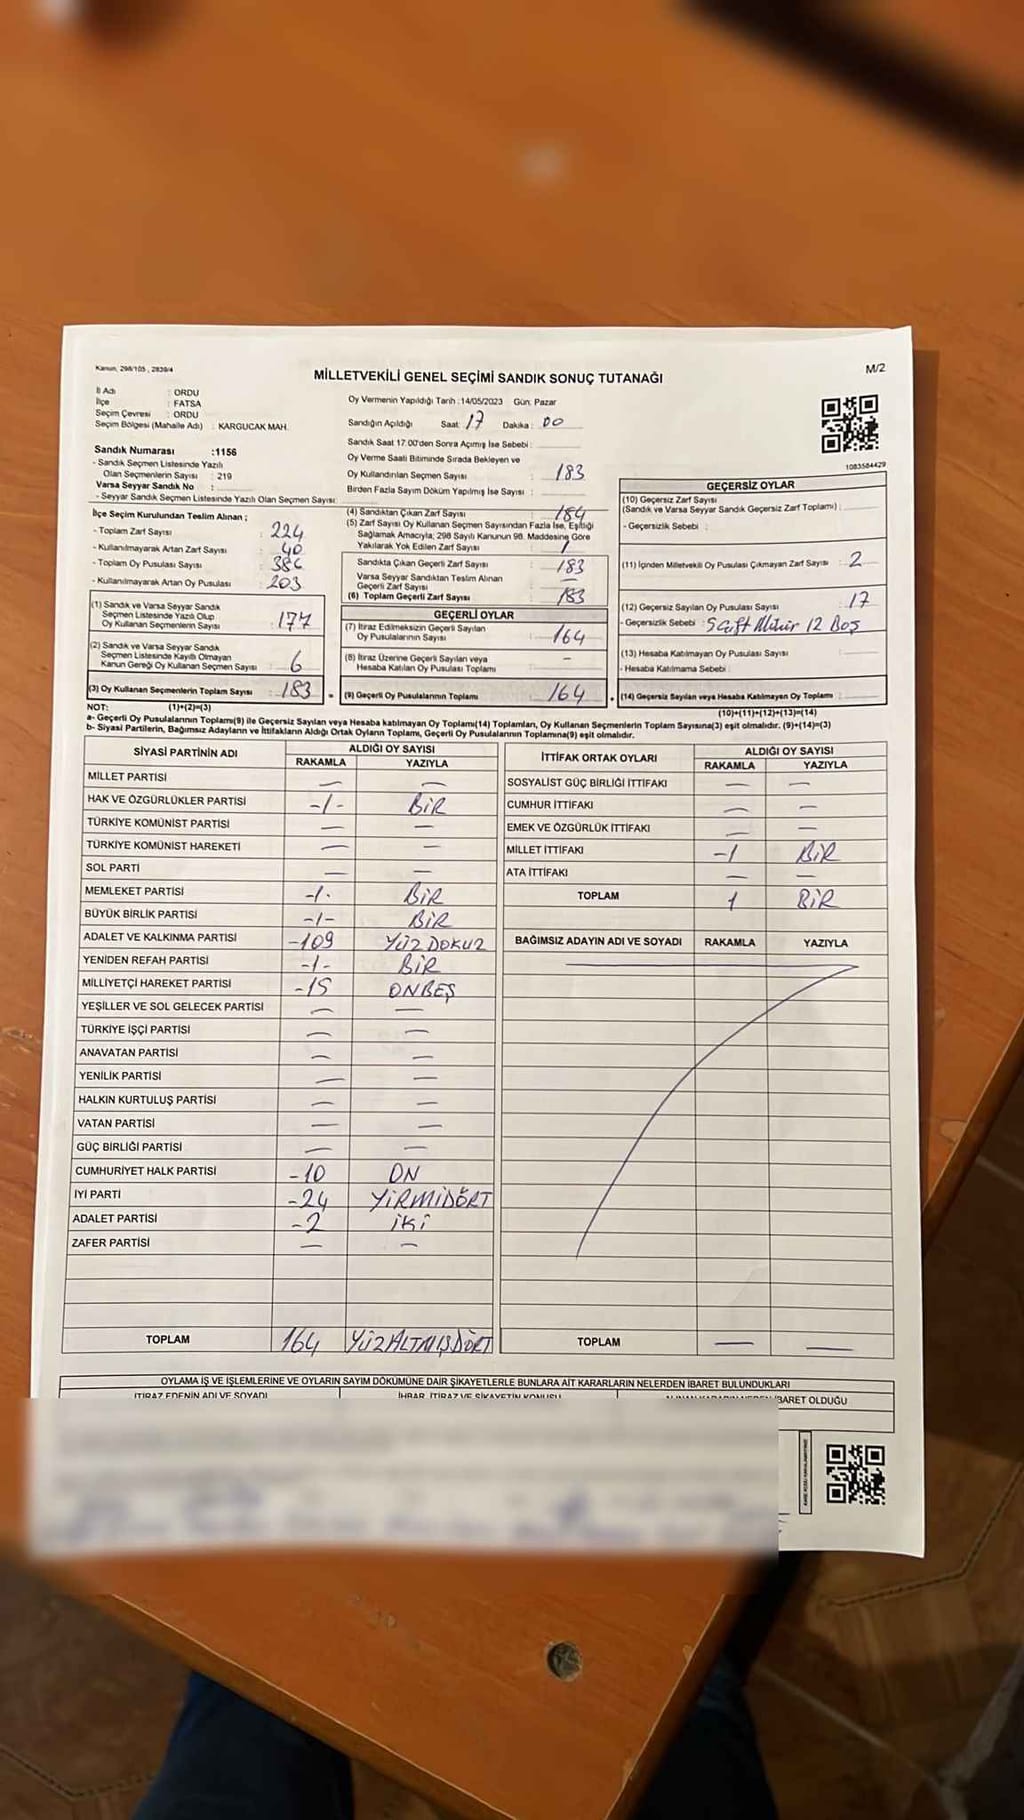 Kanun, 298/105 , 2839/4
MİLLETVEKİLİ GENEL SEÇİMİ SANDIK SONUÇ TUTANAĞI
M/2
İl Adı : ORDU
İlçe : FATSA
Seçim Çevresi : ORDU
Seçim Bölgesi (Mahalle Adı) : KARGUCAK MAH.
Oy Vermenin Yapıldığı Tarih :14/05/2023 Gün: Pazar
Sandığın Açıldığı Saat: 17 Dakika : 00
Sandık Saat 17:00'den Sonra Açımış İse Sebebi :
Oy Verme Saati Bitiminde Sırada Bekleyen ve
Oy Kullandırılan Seçmen Sayısı : 183
Birden Fazla Sayım Döküm Yapılmış İse Sayısı :
1083584429
Sandık Numarası :1156
- Sandık Seçmen Listesinde Yazılı
Olan Seçmenlerin Sayısı : 219
Varsa Seyyar Sandık No :
- Seyyar Sandık Seçmen Listesinde Yazılı Olan Seçmen Sayısı:
İlçe Seçim Kurulundan Teslim Alınan ;
- Toplam Zarf Sayısı : 224
- Kullanılmayarak Artan Zarf Sayısı : 40
- Toplam Oy Pusulası Sayısı :
- Kullanılmayarak Artan Oy Pusulası : 203
(1) Sandık ve Varsa Seyyar Sandık
Seçmen Listesinde Yazılı Olup
Oy Kullanan Seçmenlerin Sayısı : 177
(2) Sandık ve Varsa Seyyar Sandık
Seçmen Listesinde Kayıtlı Olmayan
Kanun Gereği Oy Kullanan Seçmen Sayısı : 6
(3) Oy Kullanan Seçmenlerin Toplam Sayısı : 183
(4) Sandıktan Çıkan Zarf Sayısı : 184
(5) Zarf Sayısı Oy Kullanan Seçmen Sayısından Fazla İse, Eşitliği
Sağlamak Amacıyla; 298 Sayılı Kanunun 98. Maddesine Göre
Yakılarak Yok Edilen Zarf Sayısı : 1
Sandıkta Çıkan Geçerli Zarf Sayısı : 183
Varsa Seyyar Sandıktan Teslim Alınan
Geçerli Zarf Sayısı : —
(6) Toplam Geçerli Zarf Sayısı : 183
GEÇERLİ OYLAR
(7) İtiraz Edilmeksizin Geçerli Sayılan
Oy Pusulalarının Sayısı : 164
(8) İtiraz Üzerine Geçerli Sayılan veya
Hesaba Katılan Oy Pusulası Toplamı : –
(9) Geçerli Oy Pusulalarının Toplamı : 164
GEÇERSİZ OYLAR
(10) Geçersiz Zarf Sayısı
(Sandık ve Varsa Seyyar Sandık Geçersiz Zarf Toplamı) :
- Geçersizlik Sebebi :
(11) İçinden Milletvekili Oy Pusulası Çıkmayan Zarf Sayısı : 2
(12) Geçersiz Sayılan Oy Pusulası Sayısı : 17
- Geçersizlik Sebebi : 5 Çift Mühür 12 Boş
(13) Hesaba Katılmayan Oy Pusulası Sayısı :
- Hesaba Katılmama Sebebi :
(14) Geçersiz Sayılan veya Hesaba Katılmayan Oy Toplamı :
NOT: (1)+(2)=(3)
(10)+(11)+(12)+(13)=(14)
a- Geçerli Oy Pusulalarının Toplamı(9) ile Geçersiz Sayılan veya Hesaba katılmayan Oy Toplamı(14) Toplamları, Oy Kullanan Seçmenlerin Toplam Sayısına(3) eşit olmalıdır. (9)+(14)=(3)
b- Siyasi Partilerin, Bağımsız Adayların ve İttifakların Aldığı Ortak Oyların Toplamı, Geçerli Oy Pusulalarının Toplamına(9) eşit olmalıdır.
SİYASİ PARTİNİN ADI ALDIĞI OY SAYISI
RAKAMLA YAZIYLA
MİLLET PARTİSİ — —
HAK VE ÖZGÜRLÜKLER PARTİSİ -1- BİR
TÜRKİYE KOMÜNİST PARTİSİ — —
TÜRKİYE KOMÜNİST HAREKETİ — —
SOL PARTİ — —
MEMLEKET PARTİSİ -1- BİR
BÜYÜK BİRLİK PARTİSİ -1- BİR
ADALET VE KALKINMA PARTİSİ -109 YÜZDOKUZ
YENİDEN REFAH PARTİSİ -1- BİR
MİLLİYETÇİ HAREKET PARTİSİ -15 ONBEŞ
YEŞİLLER VE SOL GELECEK PARTİSİ — —
TÜRKİYE İŞÇİ PARTİSİ — —
ANAVATAN PARTİSİ — —
YENİLİK PARTİSİ — —
HALKIN KURTULUŞ PARTİSİ — —
VATAN PARTİSİ — —
GÜÇ BİRLİĞİ PARTİSİ — —
CUMHURİYET HALK PARTİSİ -10 ON
İYİ PARTİ -24 YİRMİDÖRT
ADALET PARTİSİ -2 İKİ
ZAFER PARTİSİ — —
TOPLAM 164 YÜZALTMIŞDÖRT
İTTİFAK ORTAK OYLARI ALDIĞI OY SAYISI
RAKAMLA YAZIYLA
SOSYALİST GÜÇ BİRLİĞİ İTTİFAKI — —
CUMHUR İTTİFAKI — —
EMEK VE ÖZGÜRLÜK İTTİFAKI — —
MİLLET İTTİFAKI -1 BİR
ATA İTTİFAKI — —
TOPLAM 1 BİR
BAĞIMSIZ ADAYIN ADI VE SOYADI RAKAMLA YAZIYLA
TOPLAM — —
OYLAMA İŞ VE İŞLEMLERİNE VE OYLARIN SAYIM DÖKÜMÜNE DAİR ŞİKAYETLERLE BUNLARA AİT KARARLARIN NELERDEN İBARET BULUNDUKLARI
İTİRAZ EDENİN ADI VE SOYADI İHBAR, İTİRAZ VE ŞİKAYETİN KONUSU ALINAN KARARIN NEDEN İBARET OLDUĞU